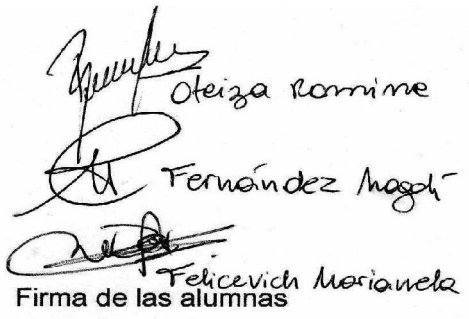 Oteiza Romina
Fernández Magalí
Felicevich Marianela
Firma de las alumnas